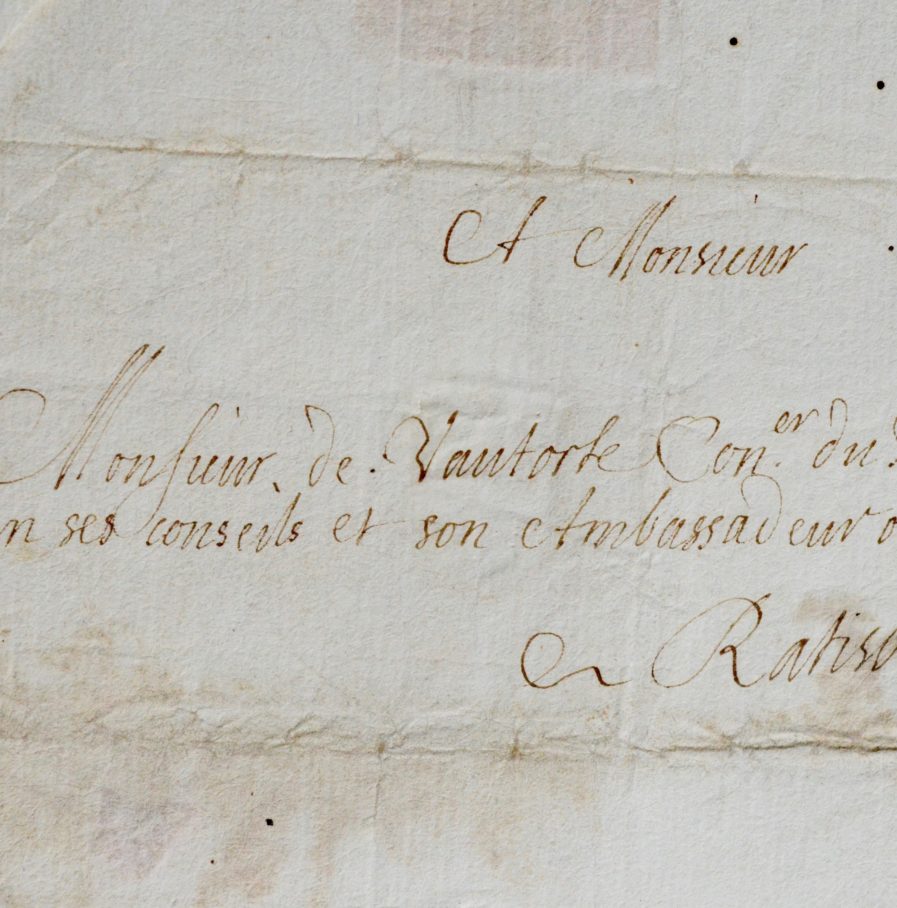 A Monsieur
Monsieur de Vautorte Con.er du
en ses conseils et son Ambassadeur
A Ratisb